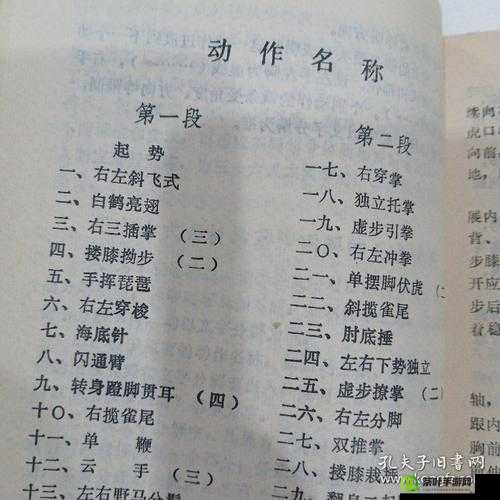 动作名称
第一段
起势
一、右左斜飞式
二、白鹤亮翅
三、右三插掌（三）
四、搂膝拗步（二）
五、手挥琵琶
六、右左穿梭
七、海底针
八、闪通臂
九、转身蹬脚贯耳（四）
十〇、右揽雀尾
十一、单鞭
十二、云手（三）
十三、右左野马分鬃
第二段
一七、右穿掌
一八、独立托掌
一九、虚步引拳
二〇、右左冲拳
二一、单摆脚伏虎
二二、斜揽雀尾
二三、肘底捶
二四、左右下势独立
二五、虚步撩掌（二
二六、右左分脚
二七、双推掌
二八、搂膝栽捶
二九、翻身
虎口
向前
地，
展内
背、
步膝
开应
步后
着稳
轴，
跟内
胸前
孔夫子旧书网
茶叶手游网